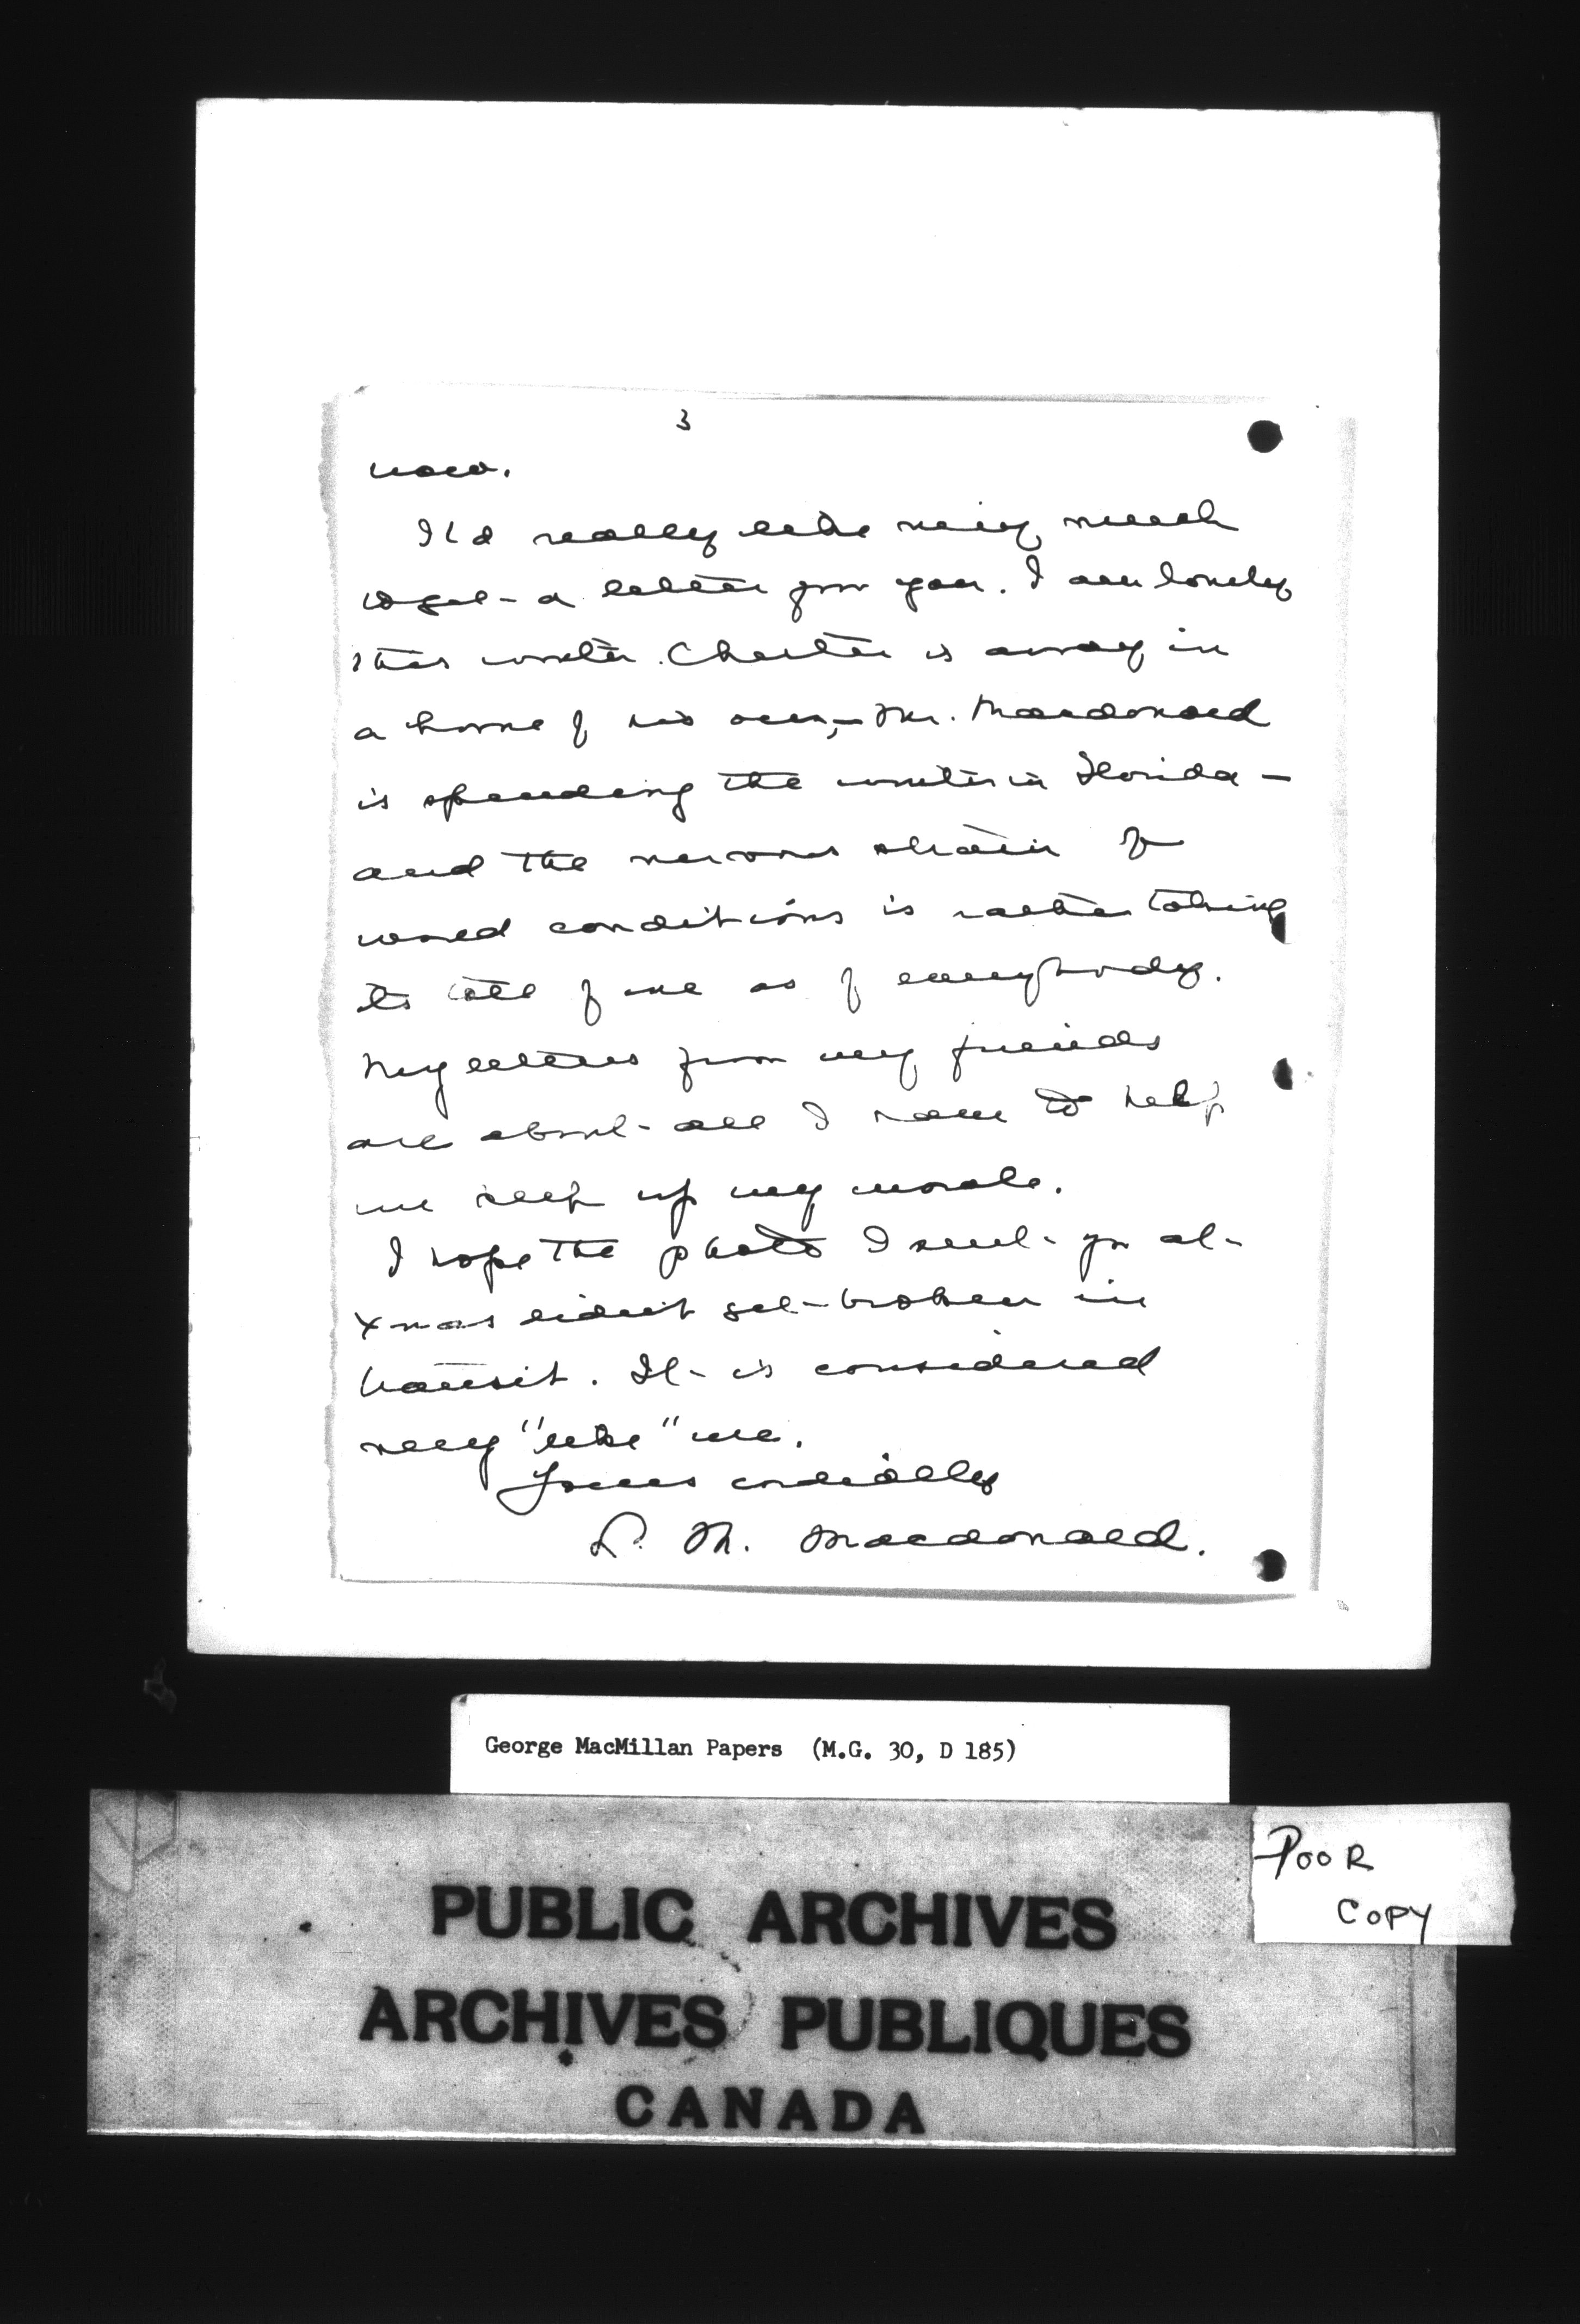 3
now.
I'd really like very much
to get a letter from you. I am lonely
this winter. Chester is away in
a home of his own,– Mr. Macdonald
is spending the winter in Florida –
and the nervous strain of
world conditions is rather taking
its toll of me as of everybody.
My letters from my friends
are about all I have to help
me keep up my morale.
I hope the photo I sent you at
Xmas didn't get broken in
transit. It is considered
very "like" me.
Yours cordially
L. M. Macdonald.
George MacMillan Papers (M.G. 30, D 185)
POOR
COPY
PUBLIC ARCHIVES
ARCHIVES PUBLIQUES
CANADA